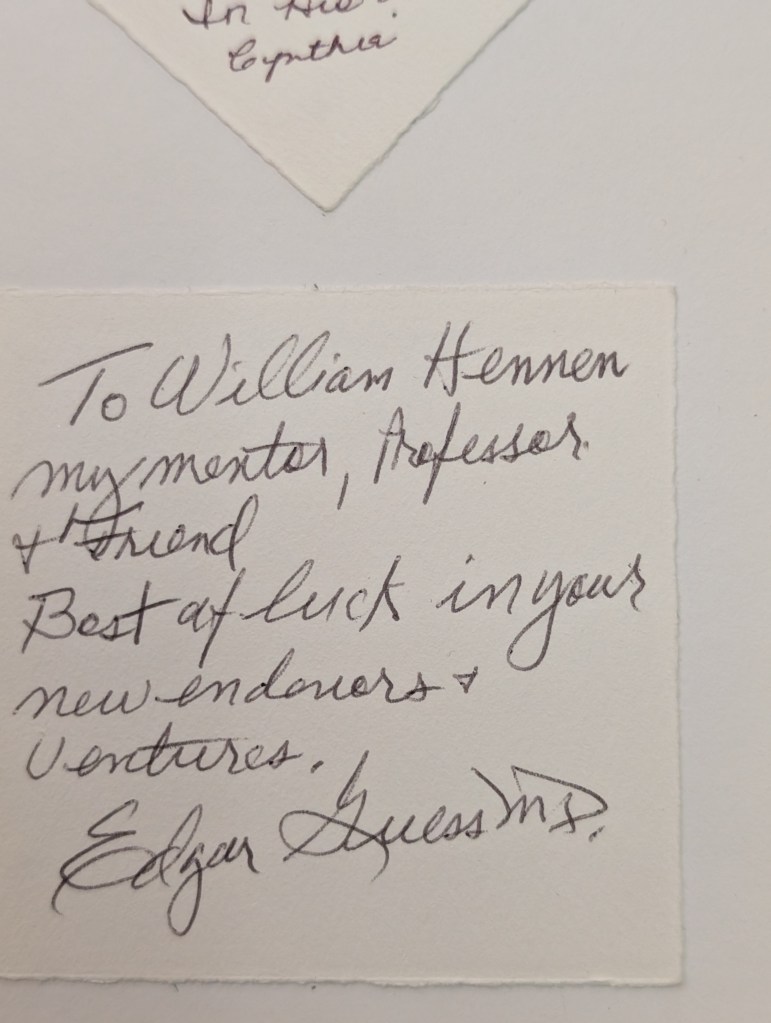 In His
Cynthia
To William Hennen
my mentor, Professor
& Friend
Best of luck in your
new endavors &
ventures.
Edgar Guess MD.